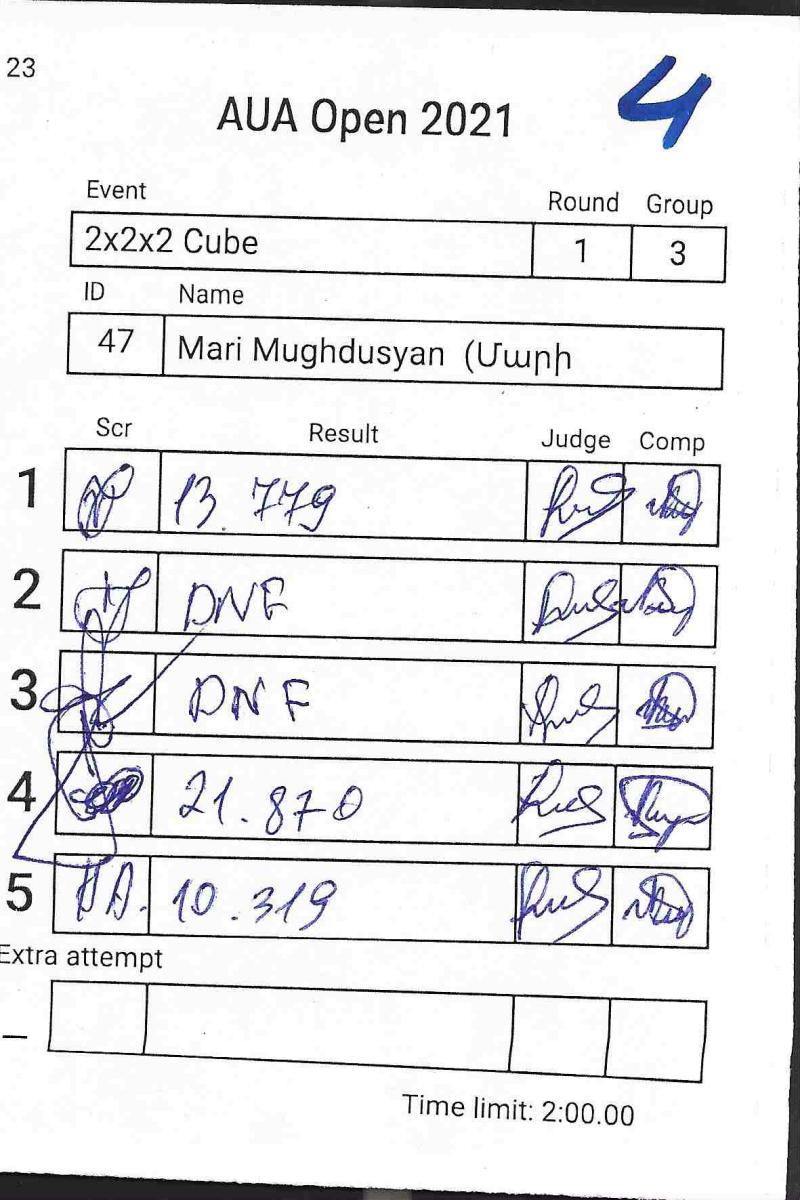 23
4
AUA Open 2021
Event Round Group
2x2x2 Cube 1 3
ID Name
47 Mari Mughdusyan (Մարի
Scr Result Judge Comp
1 13.779
2 DNF
3 DNF
4 21.870
5 A.A. 10.319
Extra attempt
_
Time limit: 2:00.00